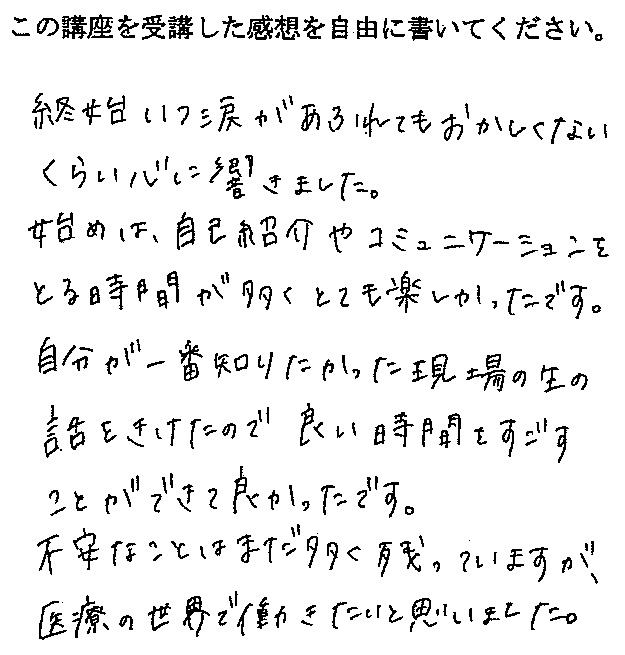 この講座を受講した感想を自由に書いてください。
終始いつ涙があふれてもおかしくない
くらい心に響きました。
始めは、自己紹介やコミュニケーションを
とる時間が多くとても楽しかったです。
自分が一番知りたかった現場の生の
話をきけたので良い時間をすごす
ことができて良かったです。
不安なことはまだ多く残っていますが、
医療の世界で働きたいと思いました。